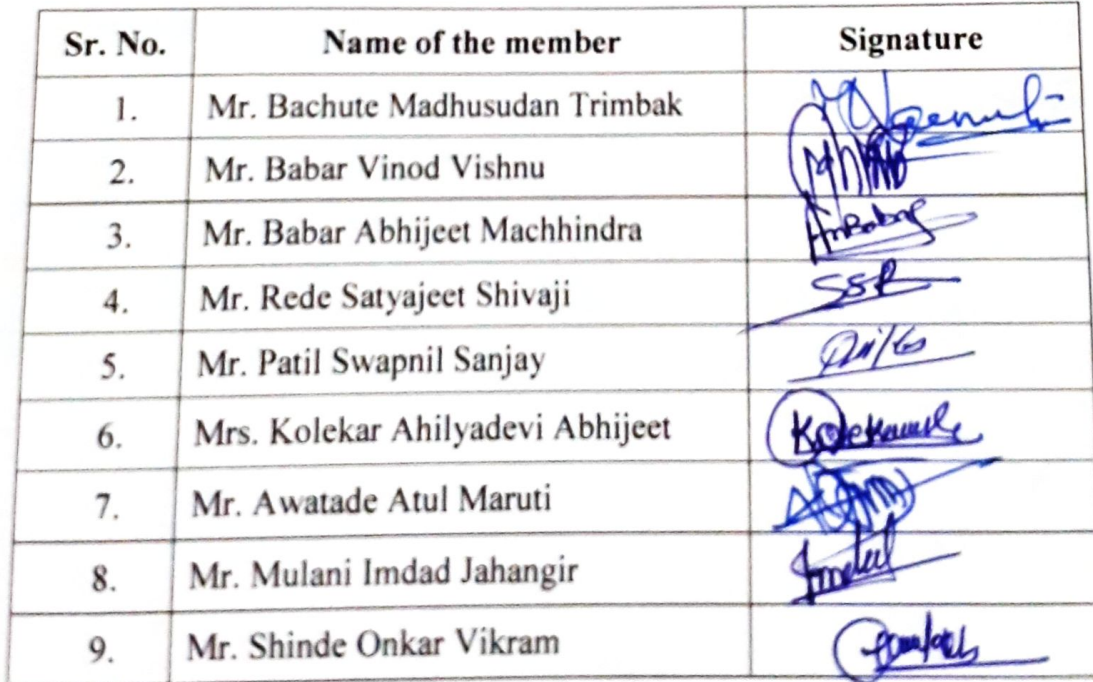 Sr. No. Name of the member Signature
1. Mr. Bachute Madhusudan Trimbak
2. Mr. Babar Vinod Vishnu
3. Mr. Babar Abhijeet Machhindra
4. Mr. Rede Satyajeet Shivaji SSR
5. Mr. Patil Swapnil Sanjay
6. Mrs. Kolekar Ahilyadevi Abhijeet
7. Mr. Awatade Atul Maruti
8. Mr. Mulani Imdad Jahangir
9. Mr. Shinde Onkar Vikram